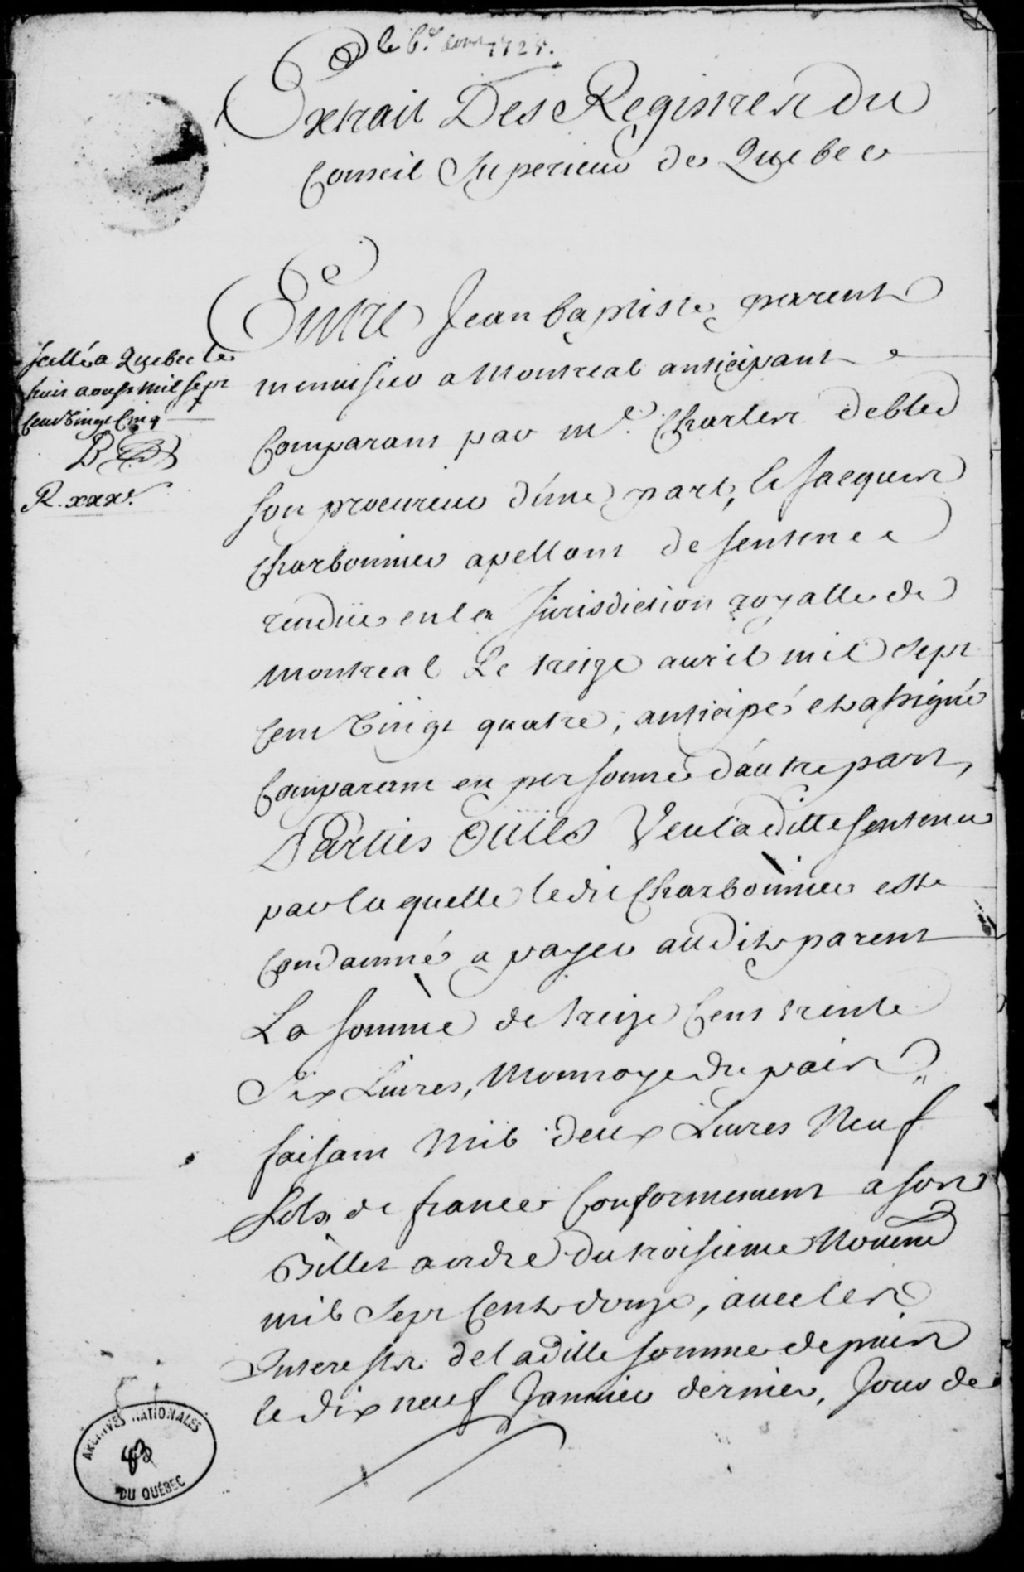 le 6.e aoust 1725.
Extrait Des Registres du
Conseil Superieur de Quebec
Entre Jean baptiste parent
menuisier a Montreal anticipant
Comparant par me. Charles
son procureur d'une part, & Jacques
Charbonnier apellant de sentence
rendüe en la Jurisdiction royalle de
Montreal Le treize avril mil sept
Cent Vingt quatre, anticipé et assigné
Comparant en personne d'autre part,
Parties Oüies Veu la ditte sentence
par laquelle ledit Charbonnier est
Condamné a payer audit parent
La somme de treize Cent trente
Six Livres, Monnoye du païs
faisant Mil deux Livres Neuf
sols de france Conformement a son
Billet a ordre du troisieme Novembre
mil Sept Cent douze, avec les
Interests de la ditte somme depuis
le dix neuf Janvier dernier, Jour de
scellé a Quebec le
huit aoust mil sept
Cent Vingt Cinq
R. xxxs.
ARCHIVES NATIONALES
DU QUÉBEC